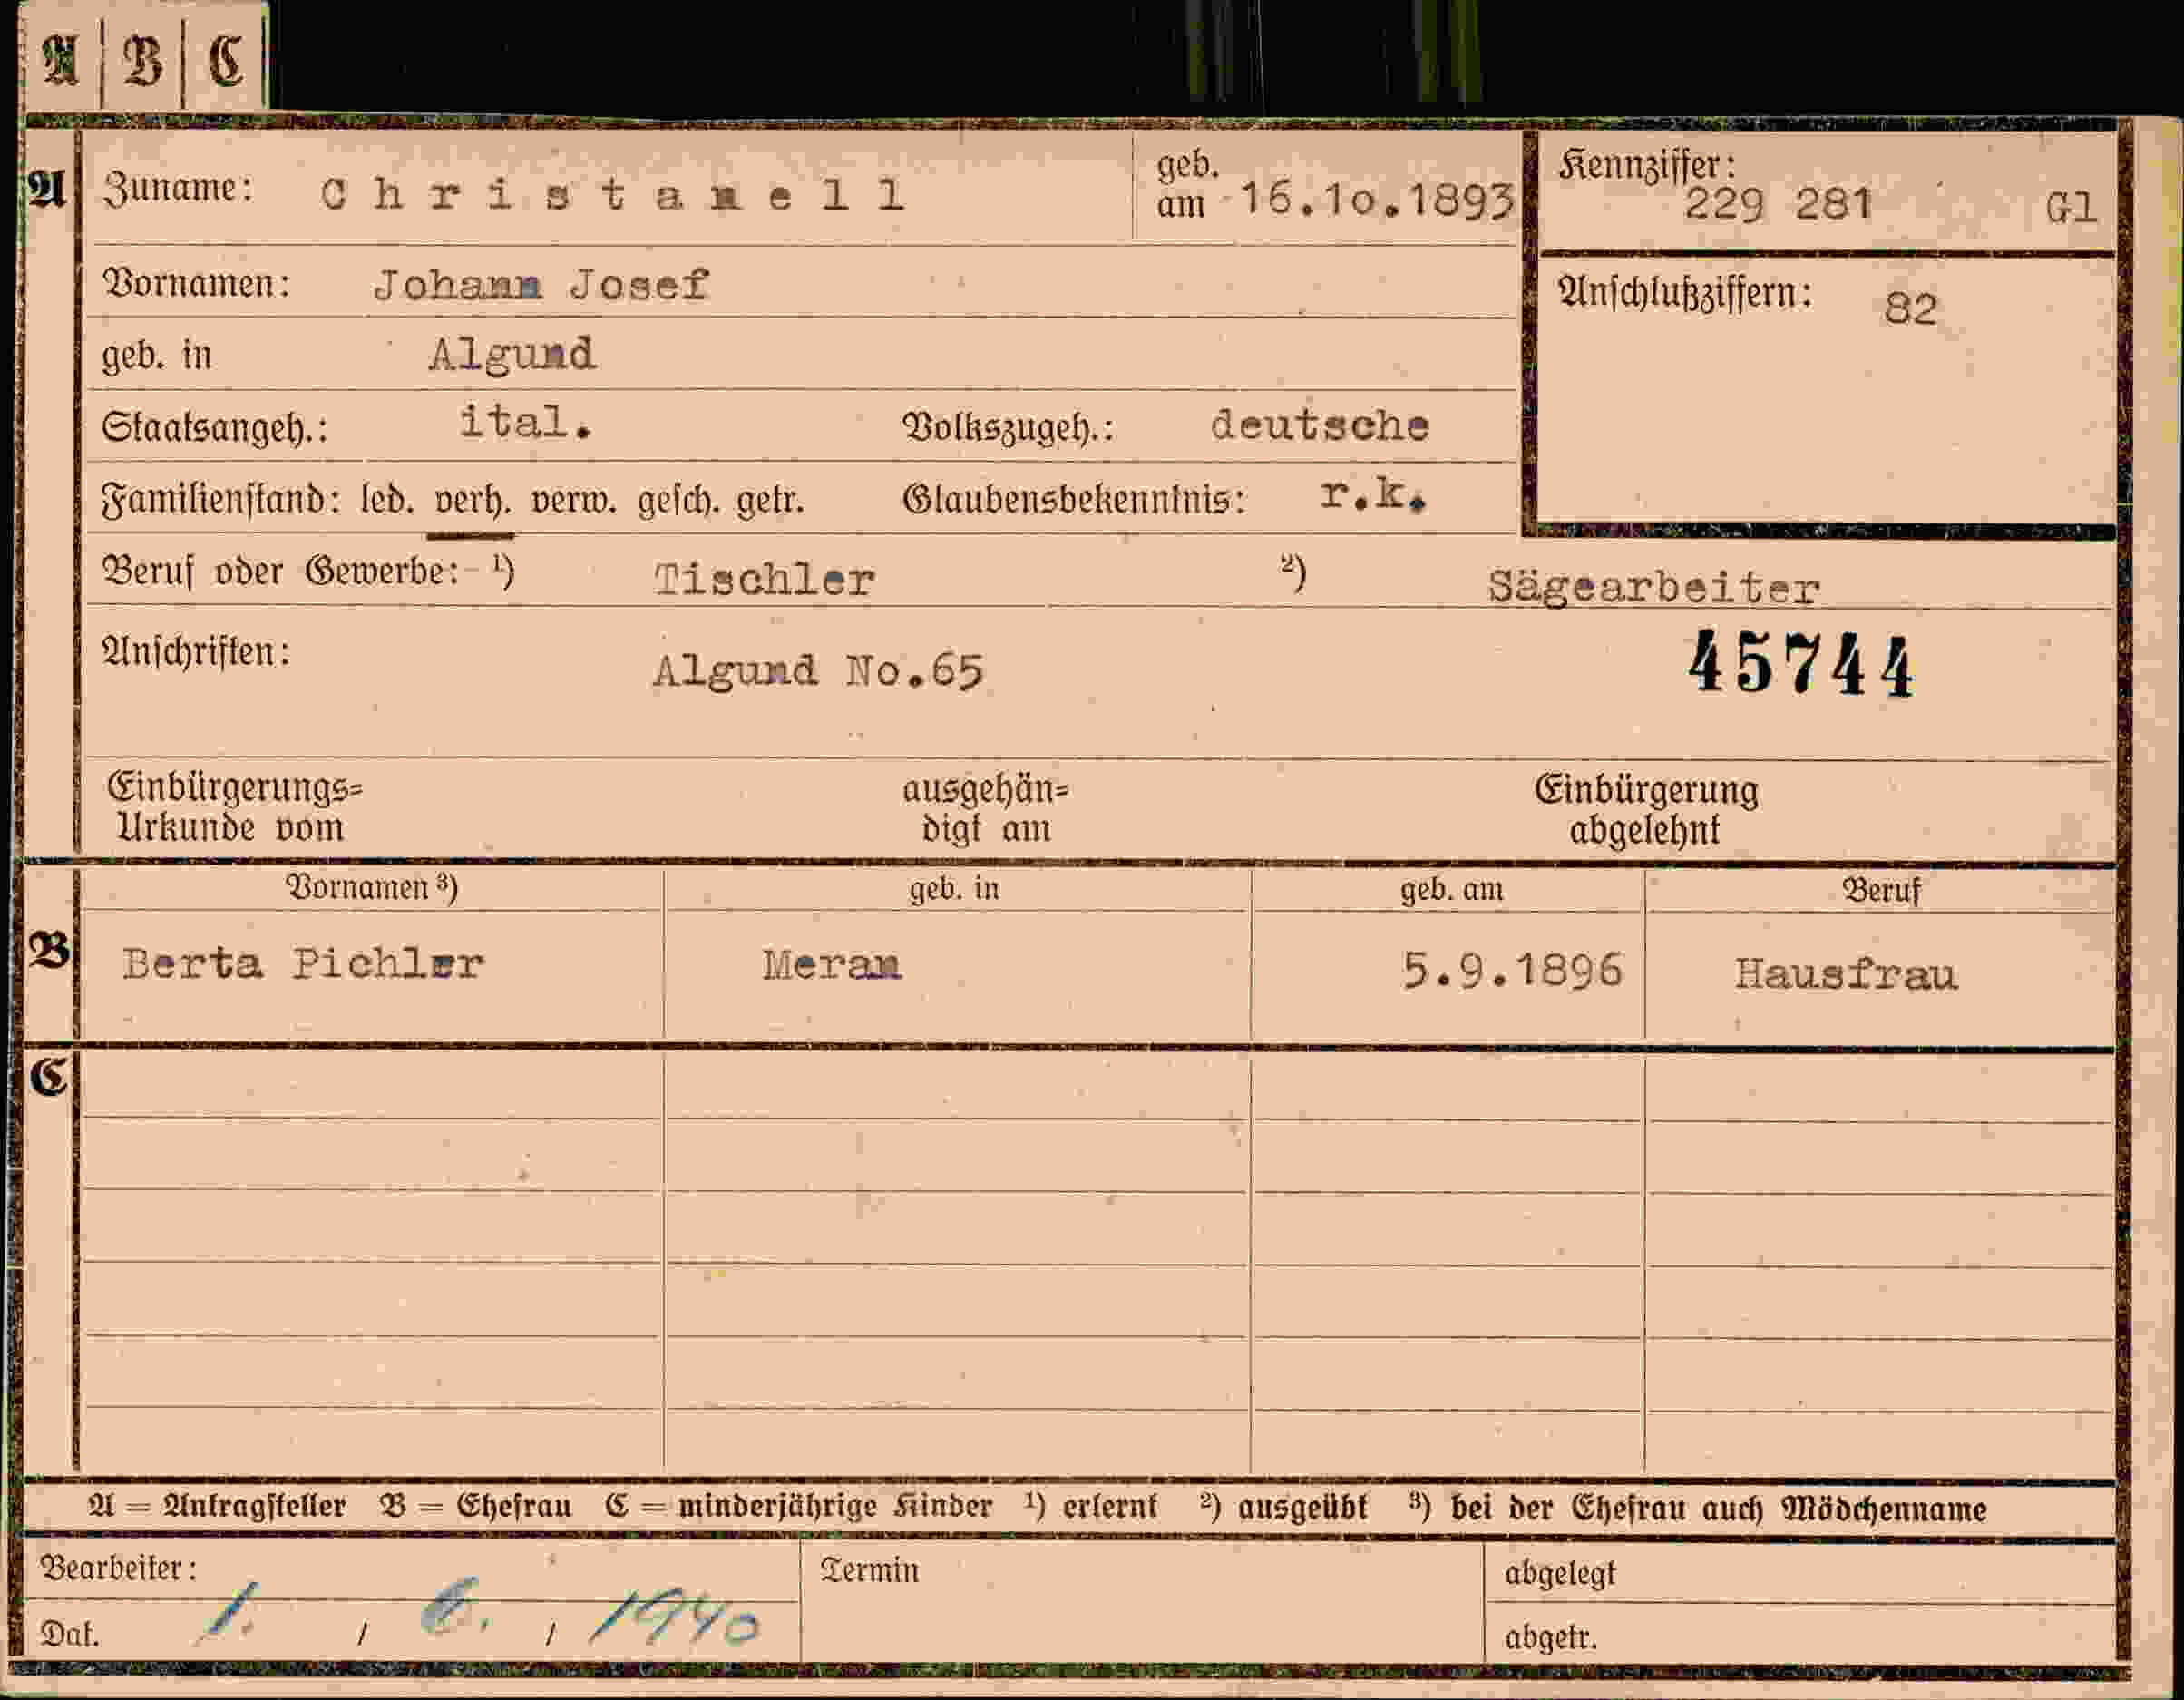 A B C
A Zuname: Christanell geb. am 16.10.1893 Kennziffer: 229 281 Gl
Vornamen: Johann Josef Anschlußziffern: 82
geb. in Algund
Staatsangeh.: ital. Volkszugeh.: deutsche
Familienstand: led. verh. verw. gesch. getr. Glaubensbekenntnis: r.k.
Beruf oder Gewerbe: 1) Tischler 2) Sägearbeiter
Anschriften: Algund No.65 45744
Einbürgerungs= ausgehän= Einbürgerung
Urkunde vom digt am abgelehnt
Vornamen 3) geb. in geb. am Beruf
B Berta Pichler Meran 5.9.1896 Hausfrau
C
A = Antragsteller B = Ehefrau C = minderjährige Kinder 1) erlernt 2) ausgeübt 3) bei der Ehefrau auch Mädchenname
Bearbeiter: Termin abgelegt
Dat. 1. / 6. / 1940 abgetr.